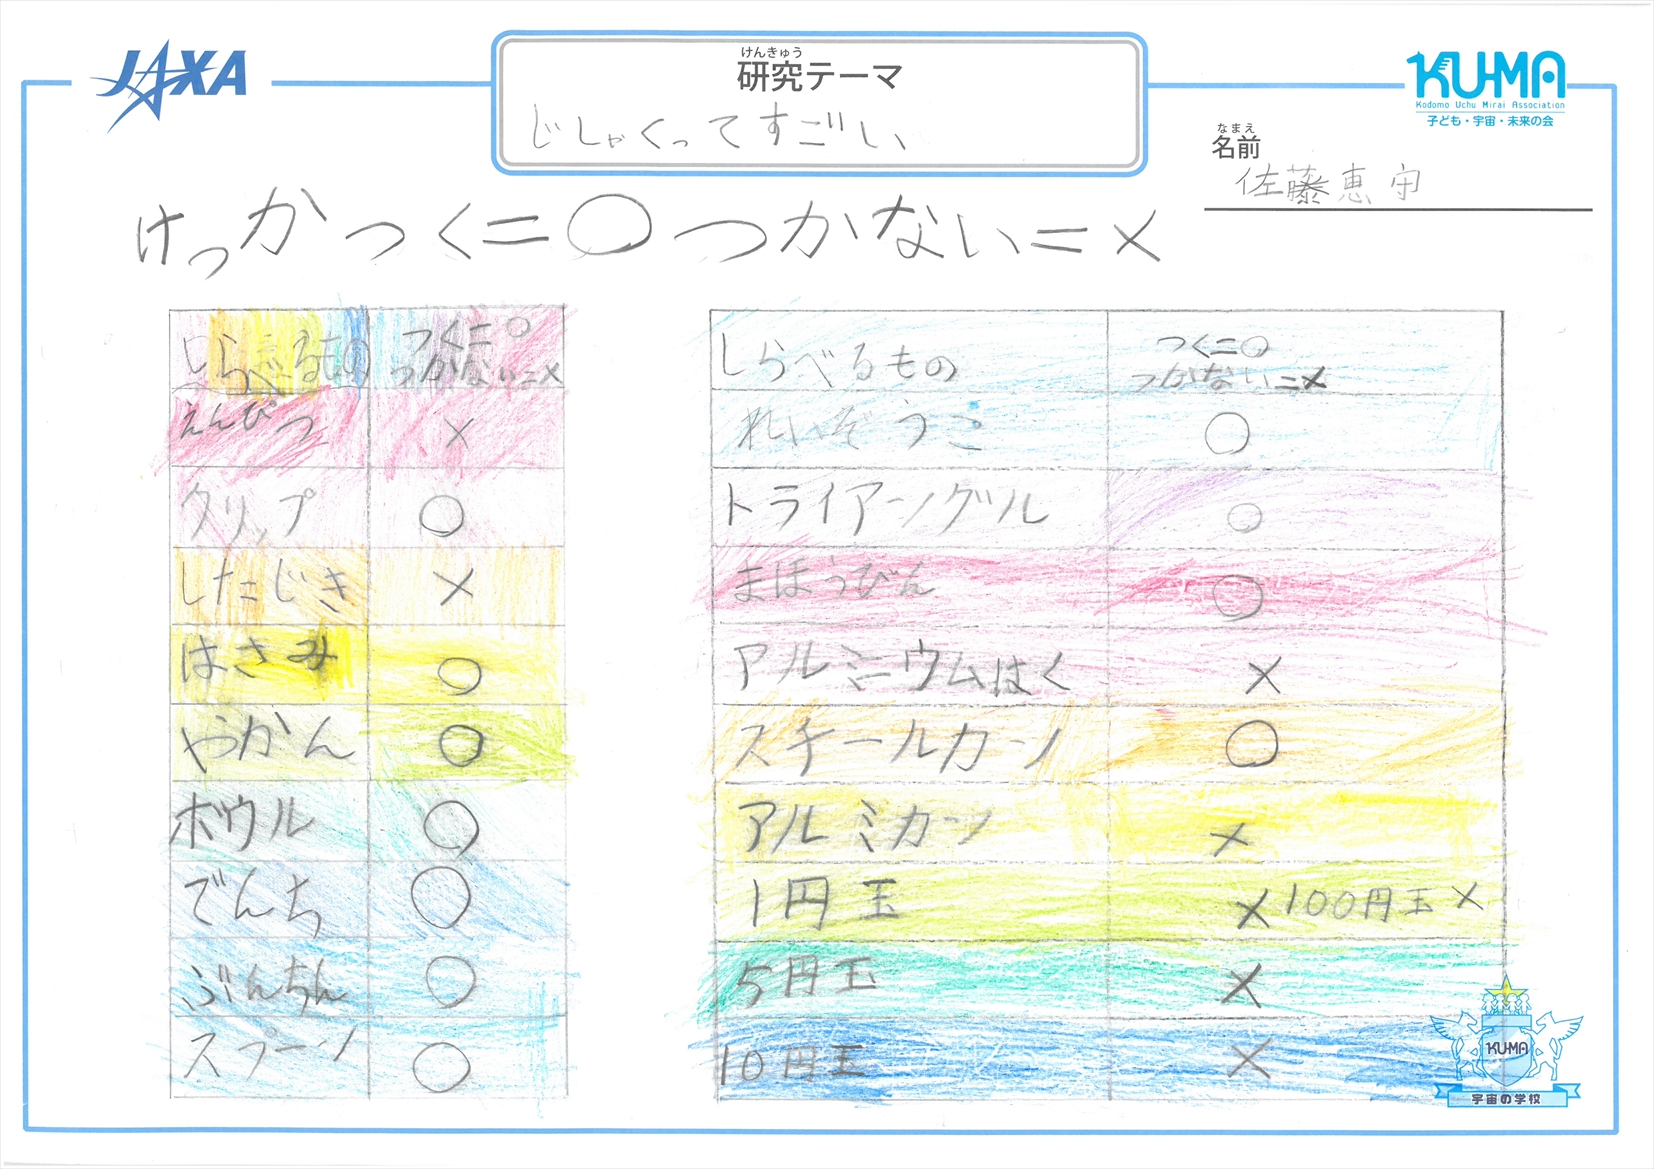 JAXA
けんきゅう
研究テーマ
じしゃくってすごい
KU-MA
Kodomo Uchu Mirai Association
子ども・宇宙・未来の会
なまえ
名前
佐藤恵守
けっかつく=○つかないい=×
しらべるもの つく=○
つかない=×
えんぴつ ×
クリップ ○
したじき ×
はさみ ○
やかん ○
ボウル ○
でんち ○
ぶんちん ○
スプーン ○
しらべるもの つく=○
つかない=×
れいぞうこ ○
トライアングル ○
まほうびん ○
アルミニウムはく ×
スチールカン ○
アルミカン ×
1円玉 × 100円玉 ×
5円玉 ×
10円玉 ×
KU-MA
宇宙の学校